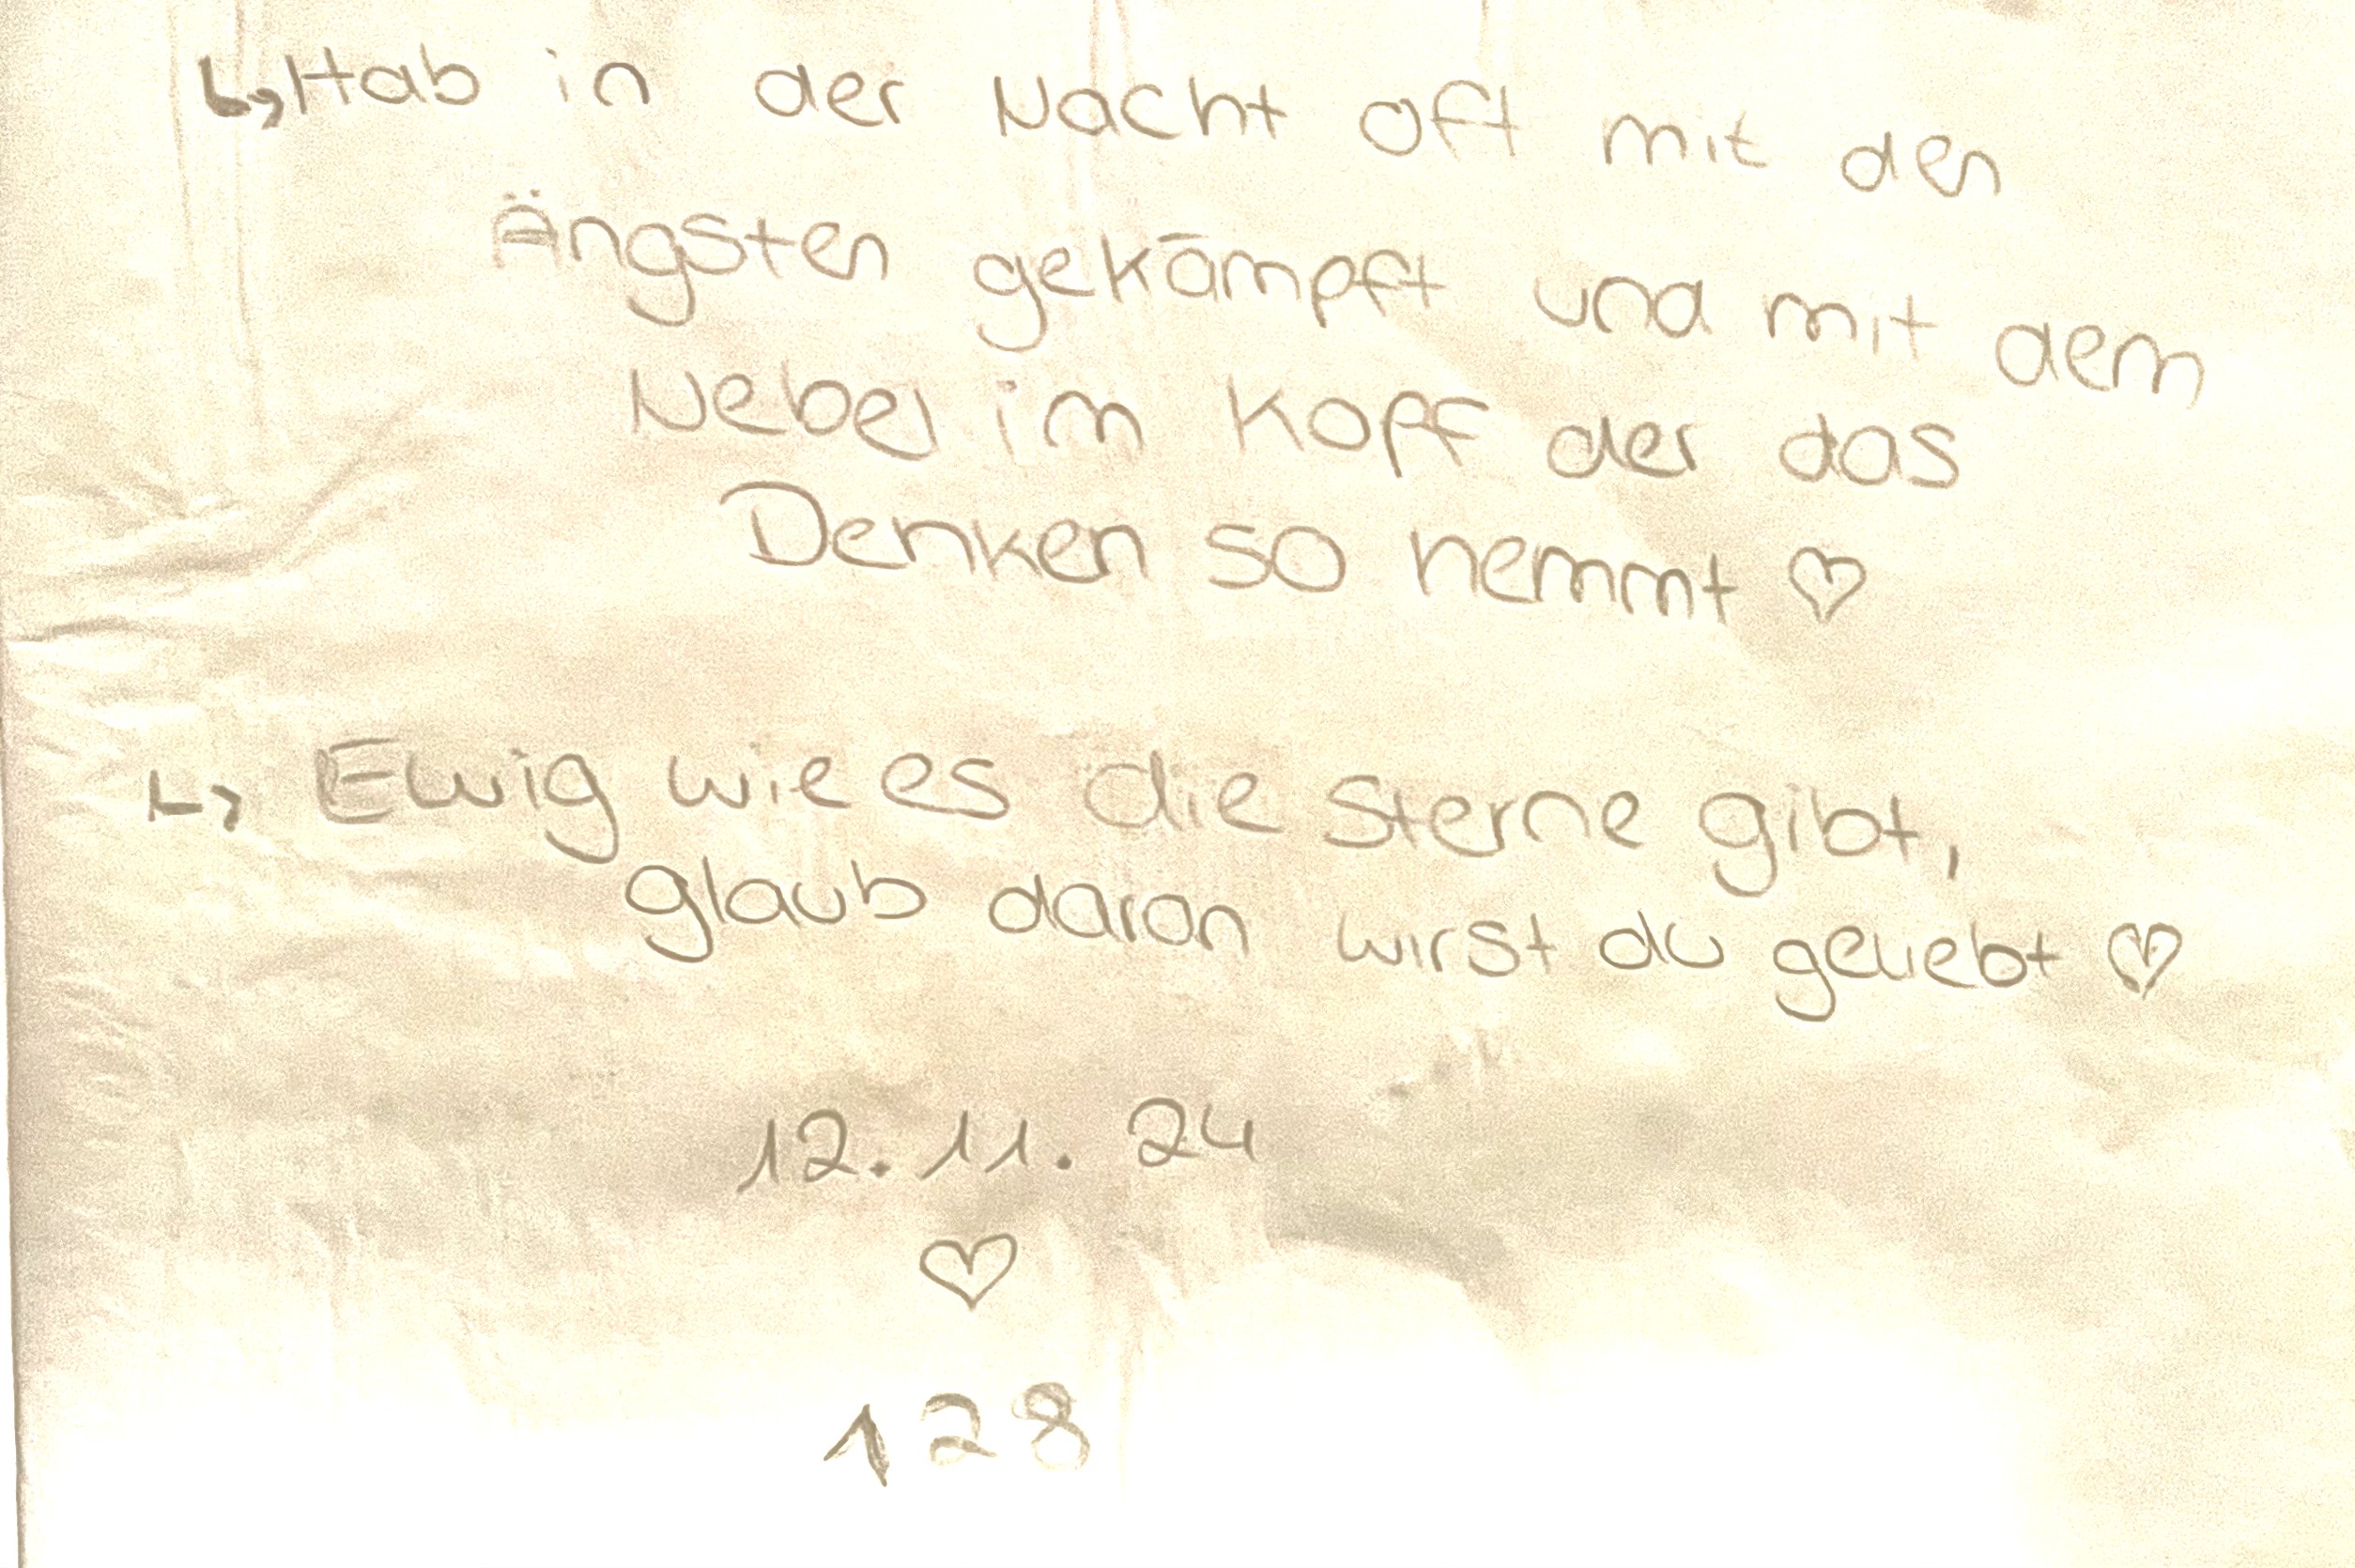 ↳ Hab in der Nacht oft mit den
Ängsten gekämpft und mit dem
Nebel im Kopf der das
Denken so hemmt ♡
↳ Ewig wie es die Sterne gibt,
glaub daran wirst du geliebt ♡
12.11.24
♡
128